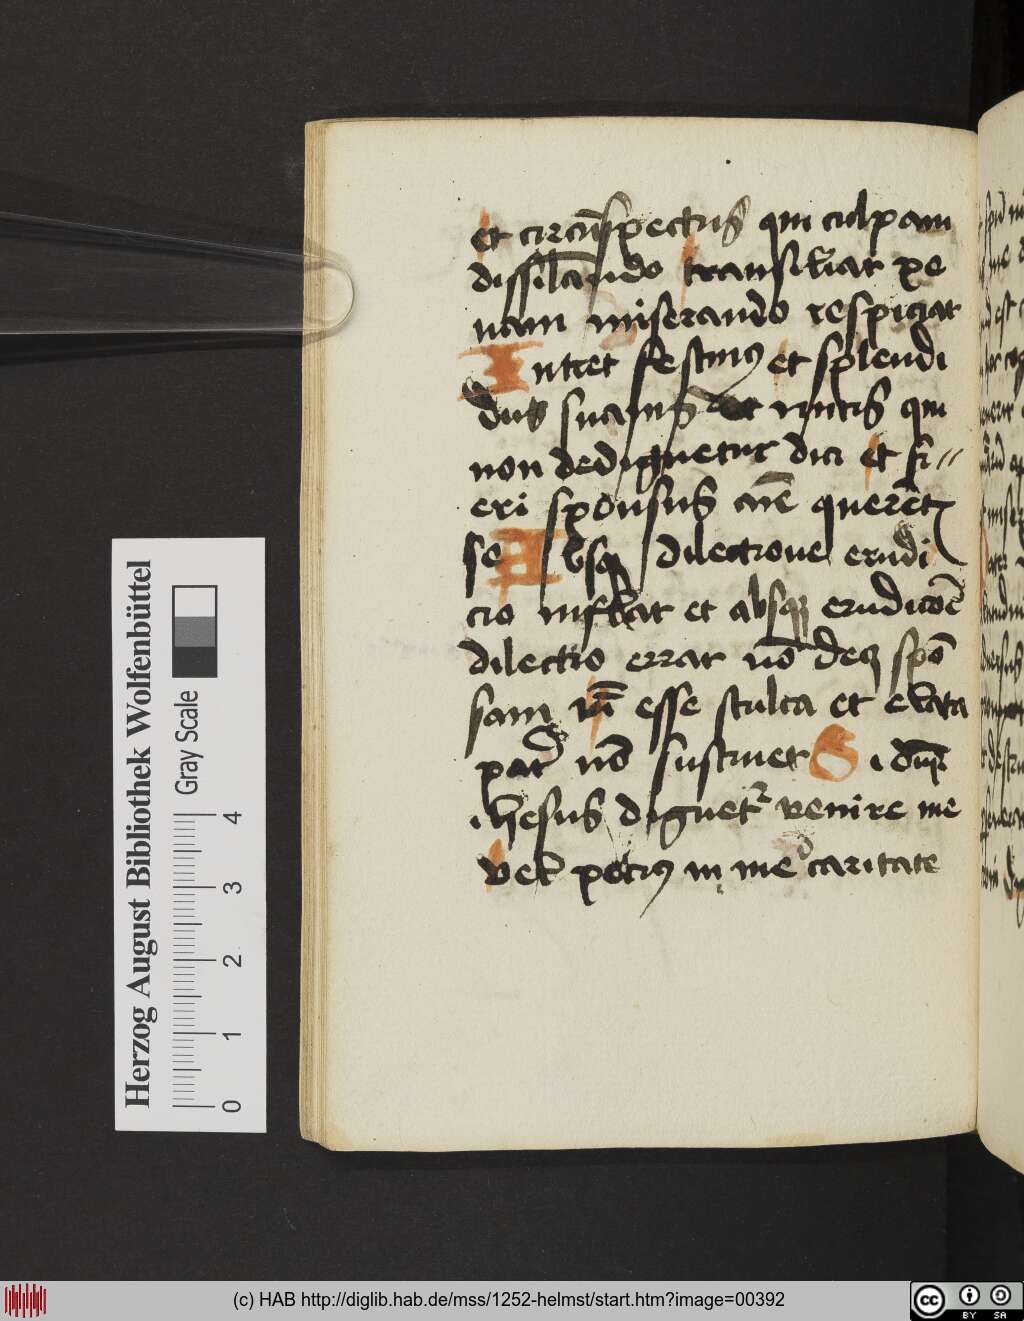 et circūspectus qui culpam
dissil̄ando transil̄iat pe
nam miserando respiciat
Intret festinꝰ et splendi
dus suauis et mitis qui
non dedignetur dici et fi
eri sponsus aīe querēt
se Absqꝫ dilectione erudi
cio inflat et absqꝫ erudicōe
dilectio errat nō decꝫ spō
sam esse stulta et elata
pat̄ nō sustinet Si dūs
ihesus dignetᷣ venire me
petrꝰ in me caritate
Herzog August Bibliothek Wolfenbüttel
Gray Scale
0 1 2 3 4
(c) HAB http://diglib.hab.de/mss/1252-helmst/start.htm?image=00392
cc BY SA